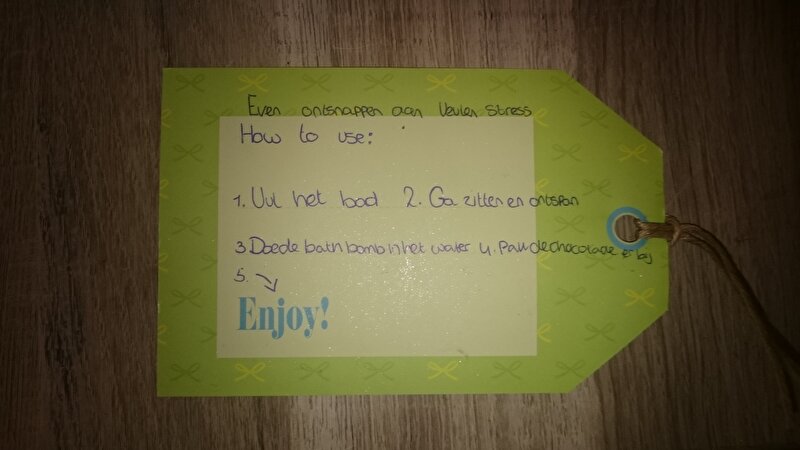 Even ontsnappen aan veulen stress
How to use:
1. Vul het bad 2. Ga zitten en ontspan
3. Doe de bath bomb in het water 4. Pak de chocolade er bij
5.
Enjoy!